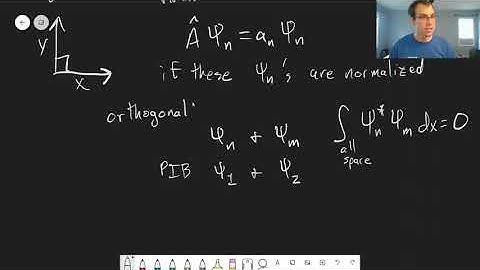 Â Ψn = an Ψn
y
if these Ψn's are normalized
x
orthogonal:
Ψn & Ψm ∫all space Ψn* Ψm dx = 0
PIB Ψ1 & Ψ2